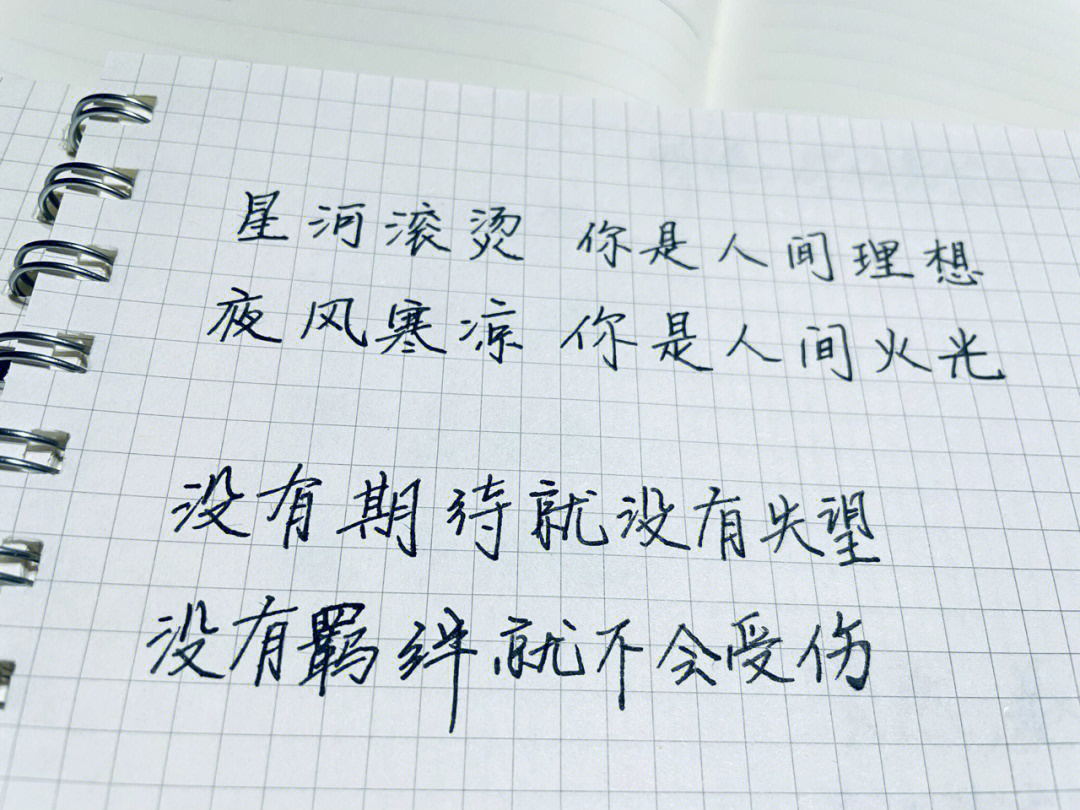 星河滚烫 你是人间理想
夜风寒凉 你是人间火光
没有期待就没有失望
没有羁绊就不会受伤